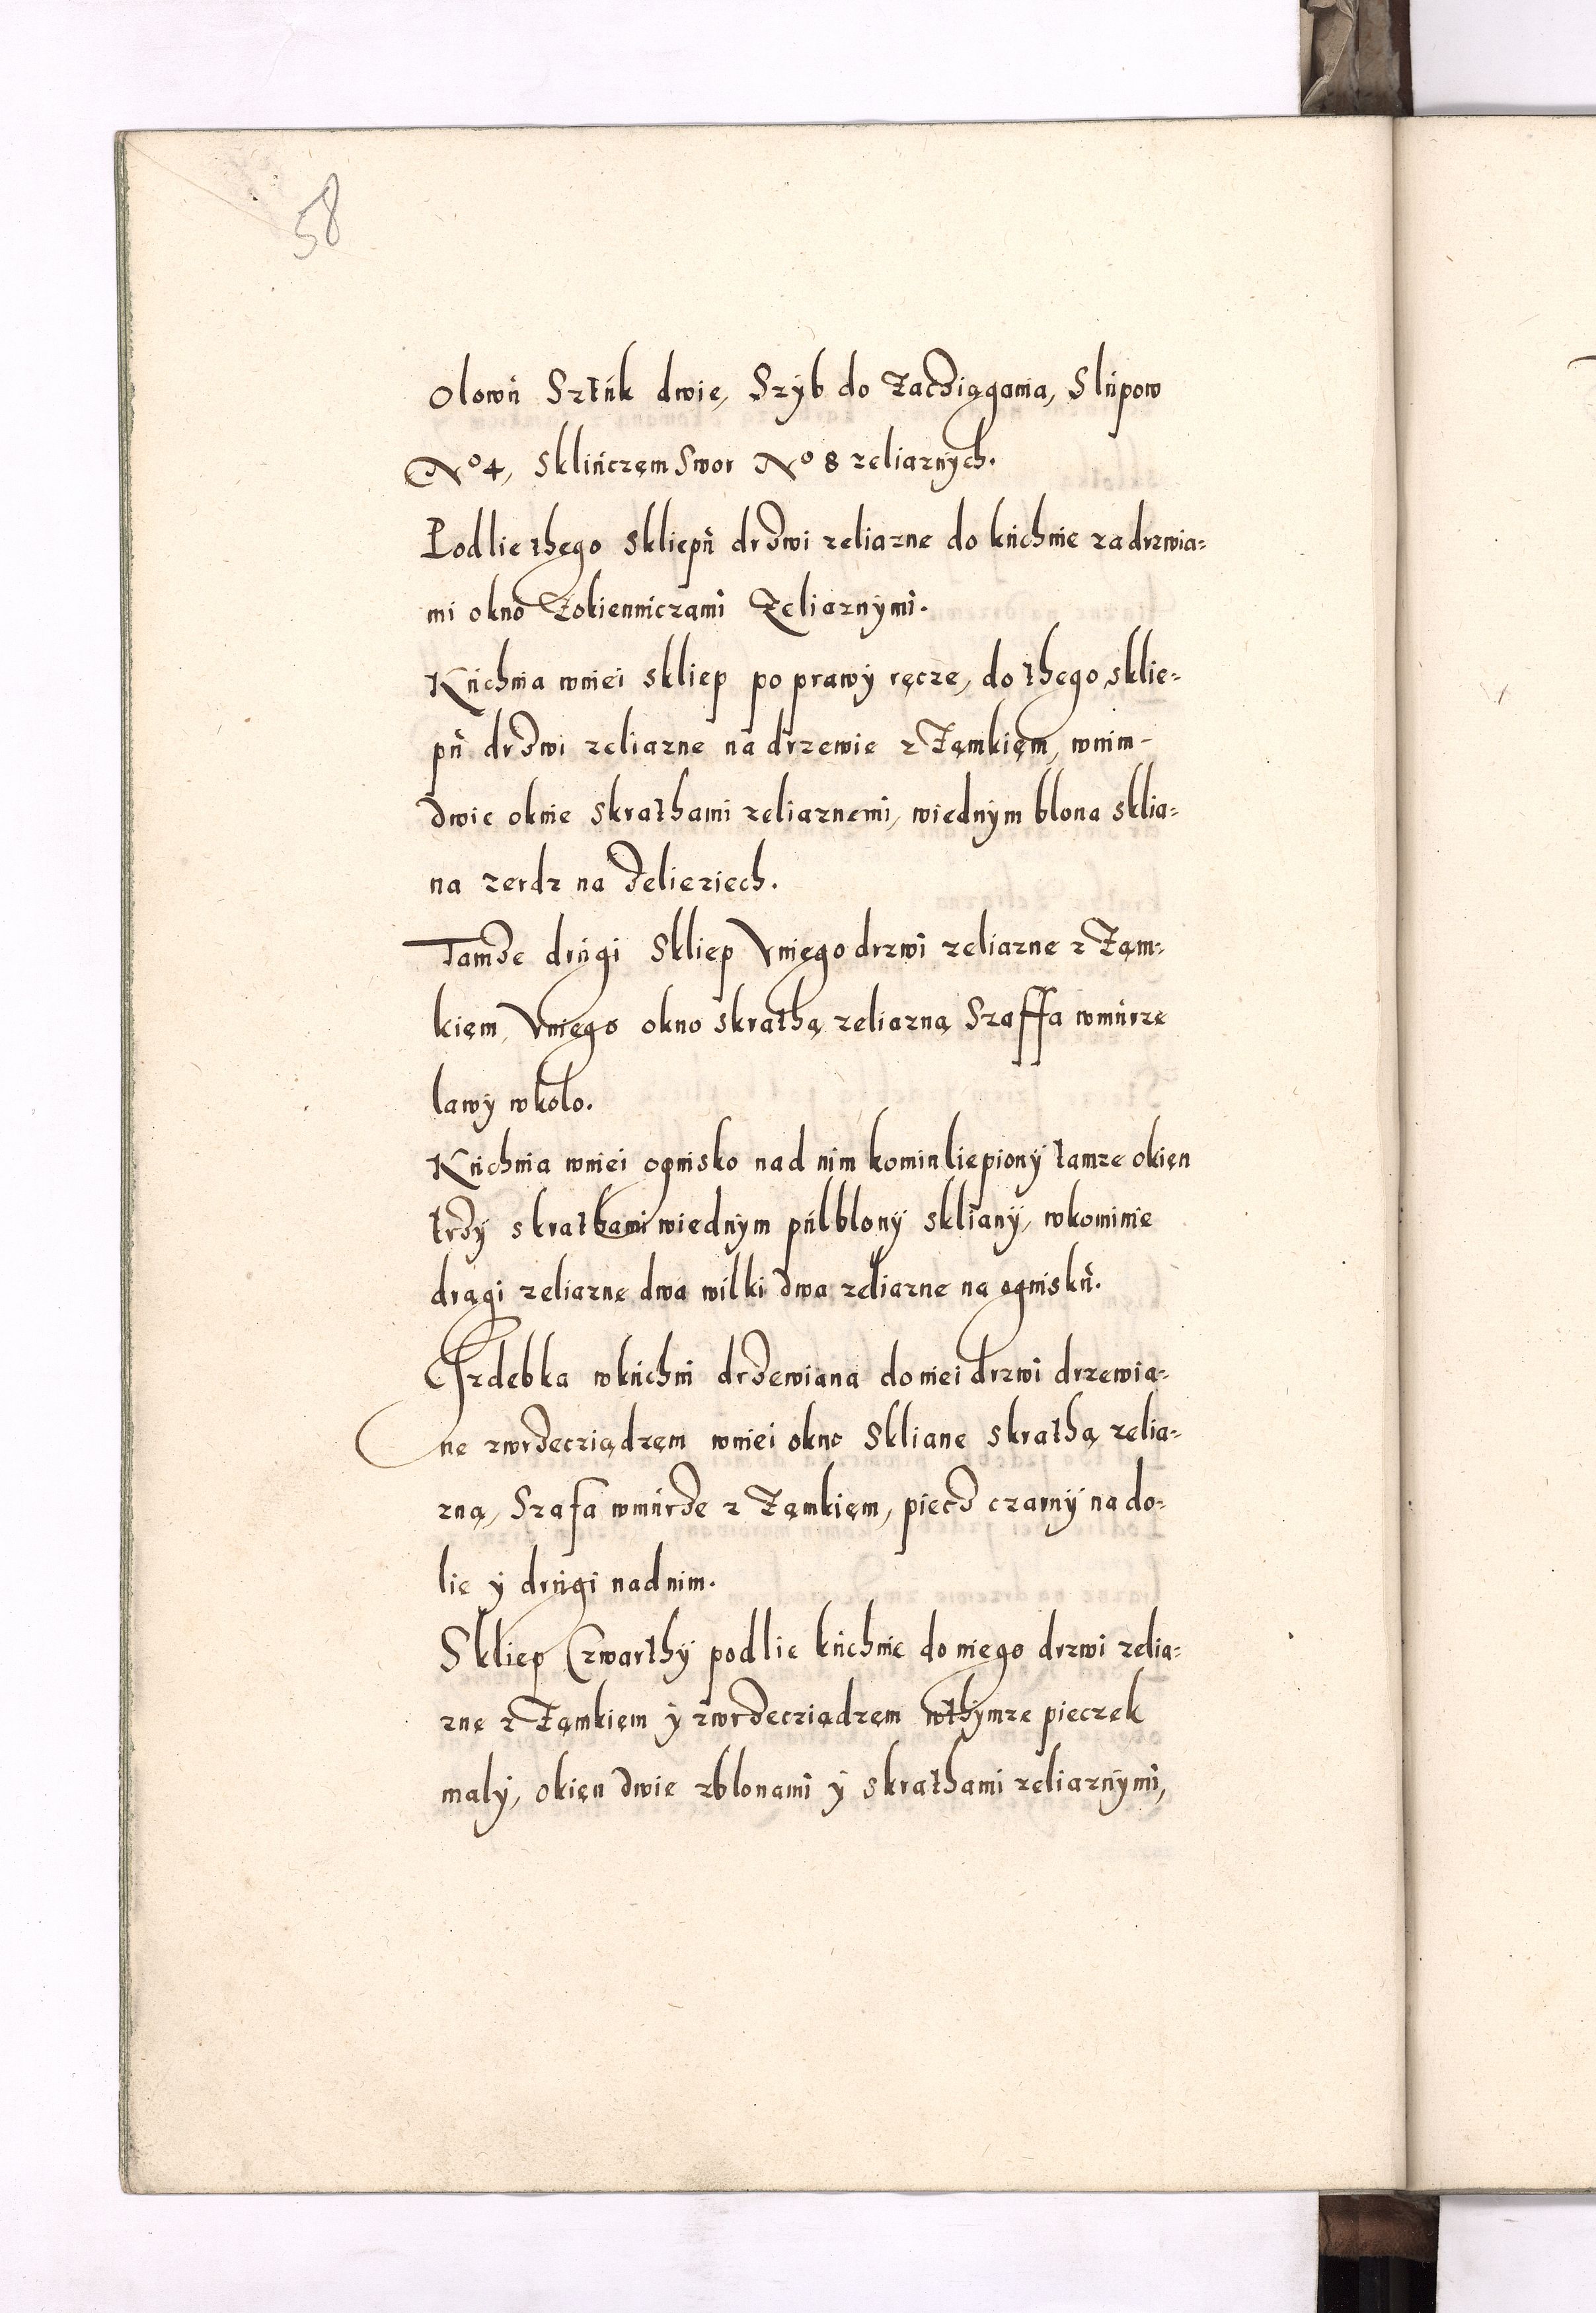 58
Olowu Sztuk dwie, Szyb do Zaciągania, Slupow
No 4, skliuczem Swor No 8 zeliaznych.
Podlie thego skliepu drzwi zeliazne do kuchnie za drzwia=
mi okno Zokienniczami Zeliaznymi.
Kuchnia wniei skliep po prawy ręcze, do thego sklie=
pu drzwi zeliazne na drzewie z Zamkięm, wnim-
dwie oknie skrathami zeliaznemi, wiednym blona sklia=
na zerdz na zelieziech.
Tamze drugi skliep Vniego drzwi zeliazne z Zam=
kięm, Vniego okno skrathą zeliazną Szaffa wmurze
lawy wkolo.
Kuchnia wniei ognisko nad nim komin liepiony tamze okien
trzy skrathami wiednym pulblony skliany, wkominie
drągi zeliazne dwa wilki dwa zeliazne na ognisku.
Izdebka wkuchni drzewiana do niei drzwi drzewia=
ne zwrzecziądzem wniei okno skliane skrathą zelia=
zną, Szafa wmurze z Zamkięm, piecz czarny na do=
lie y drugi nadnim.
Skliep Czwarthy podlie kuchnie do niego drzwi zelia=
zne z Zamkięm y zwrzecziądzem wthymze pieczek
maly, okien dwie zblonami y skrathami zeliaznymi,